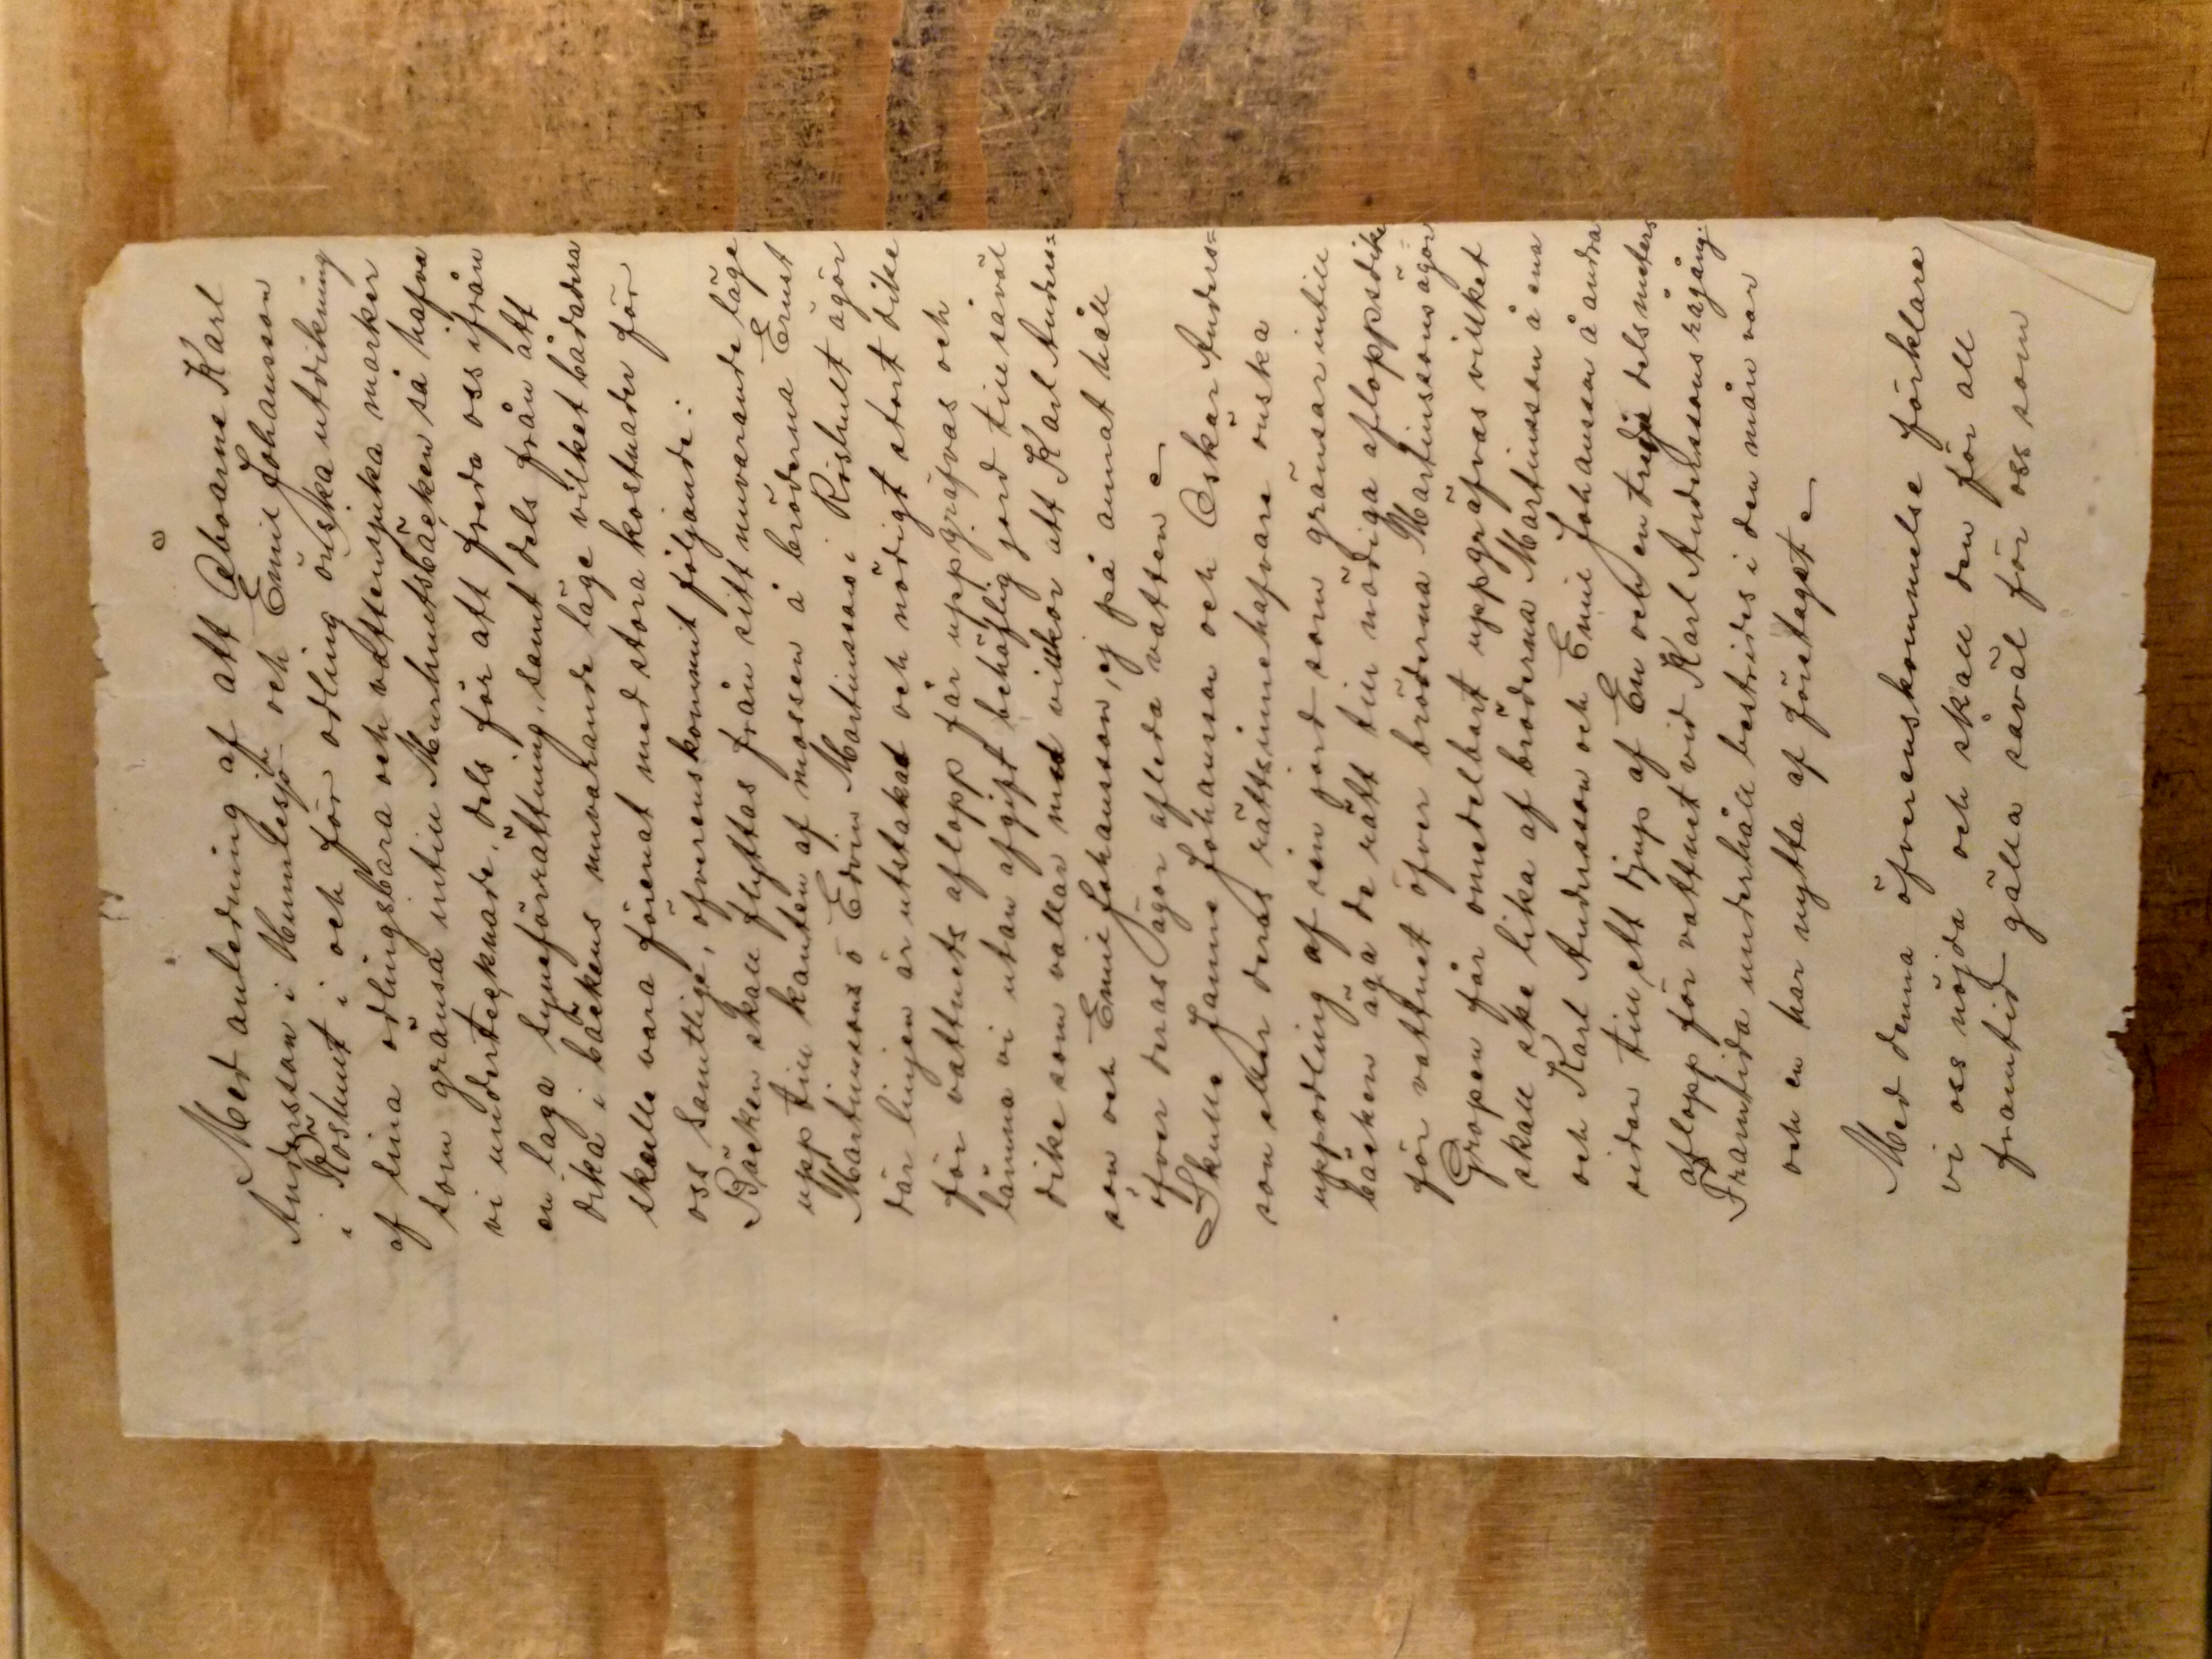 Med anledning af att Åboarne Karl
Andersson i Humlesjö och Emil Johansson
i Röshult i och för odling önska utdikning
af sina odlingsbara och vattensjuka marker
som gränsa intill Murhultsbäcken så hafva
vi undertecknade, dels för att freda oss ifrån
en laga Syneförrättning, samt dels från att
dika i bäckens nuvarande läge vilket bådadera
skulle vara förenat med stora kostnader för
oss Samtlige, öfverenskommit följande:
Bäcken skall flyttas från sitt nuvarande läge
upp till kanten af mossen å bröderna Ernst
Martinssons o Edvin Martinssons i Röshult ägor
där linjen är utstakad och nödigt stort dike
för vattnets aflopp får uppgräfvas och
lämna vi utan afgift behöflig jord till såväl
dike som vallar med villkor att Karl Anders=
son och Emil Johansson, ej på annat håll
öfver deras ägor afleda vatten
Skulle Janne Johansson och Oskar Anders=
son eller deras rättsinnehafvare önska
uppodling af sin jord som gränsar intill
bäcken äga de rätt till nödiga afloppsdike
för vattnet öfver bröderna Martinssons ägor
Gropen får omedelbart uppgräfvas vilket
skall ske lika af bröderna Martinsson å ena
och Karl Andersson och Emil Johansson å andra
sidan till ett djup af En och en tredje dels meters
aflopp för vattnet vid Karl Anderssons rågång.
Framtida underhåll bestrides i den mån var
och en har nytta af företaget
Med denna öfverenskommelse förklara
vi oss nöjda och skall den för all
framtid gälla såväl för oss som